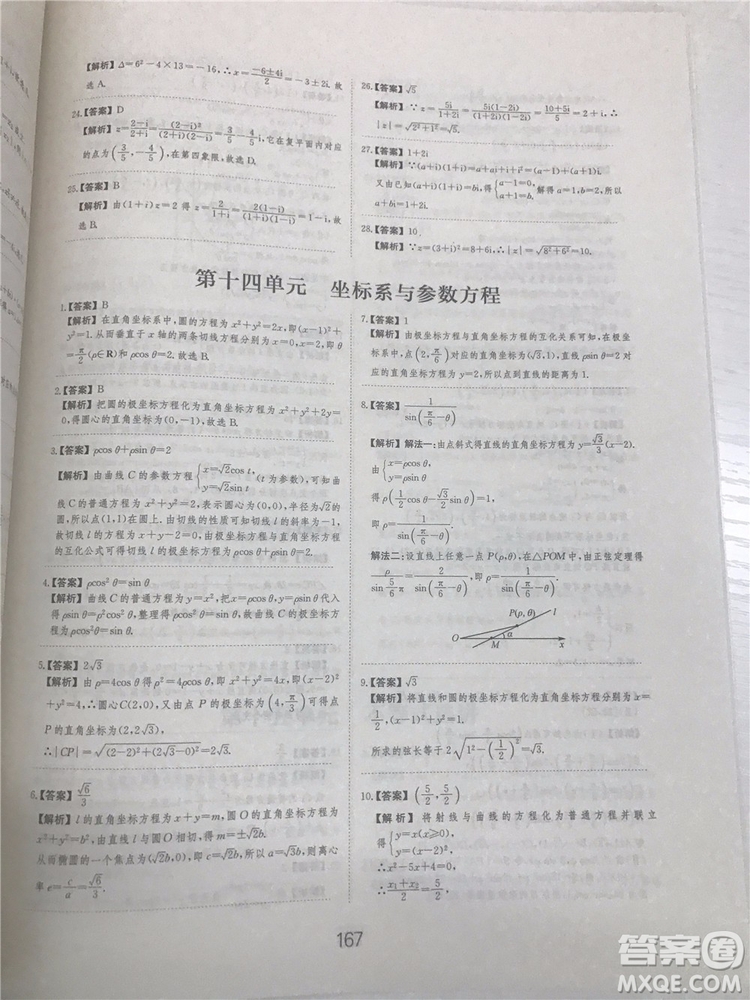 【解析】Δ=6²-4×13=-16,∴x=(-6±4i)/2=-3±2i.故
选A.
24.【答案】D
【解析】z=(2-i)/(2+i)=(2-i)²/((2+i)(2-i))=3/5-4/5 i,它在复平面内对应
的点为(3/5,-4/5),在第四象限,故选D.
25.【答案】B
【解析】由(1+i)z=2得z=2/(1+i)=2(1-i)/((1+i)(1-i))=1-i,故
选B.
26.【答案】√5
【解析】∵z=5i/(1+2i)=5i(1-2i)/((1+2i)(1-2i))=(10+5i)/5=2+i,∴
|z|=√(2²+1²)=√5.
27.【答案】1+2i
【解析】∵(a+i)(1+i)=(a+ai+i+i²)=(a-1)+(a+1)i,
又由已知得(a+i)(1+i)=bi,得{a-1=0, a+1=b,解得a=1,b=2,所以
a+bi=1+2i.
28.【答案】10.
【解析】z=(3+i)²=8+6i,|z|=√(8²+6²)=10.
第十四单元 坐标系与参数方程
1.【答案】B
【解析】在直角坐标系中,圆的方程为x²+y²=2x,即(x-1)²+
y²=1.从而垂直于x轴的两条切线方程分别为x=0,x=2,即θ
=π/2(ρ∈R)和ρcos θ=2.故选B.
2.【答案】B
【解析】把圆的极坐标方程化为直角坐标方程为x²+y²+2y=
0,得圆心的直角坐标为(0,-1),故选B.
3.【答案】ρcos θ+ρsin θ=2
【解析】由曲线C的参数方程{x=√2cos t, y=√2sin t (t为参数),可知曲
线C的普通方程为x²+y²=2,表示圆心为(0,0),半径为√2的
圆,所以点(1,1)在圆上,由切线的性质可知切线l的斜率为-1,
故切线l的方程为x+y-2=0,根据极坐标方程与直角坐标方程
的互化公式可得切线l的极坐标方程为ρcos θ+ρsin θ=2.
4.【答案】ρcos²θ=sin θ
【解析】曲线C的普通方程为y=x²,将x=ρcos θ,y=ρsin θ代入
得ρsin θ=ρ²cos²θ,整理得ρcos²θ=sin θ,故曲线C的极坐标方
程为ρcos²θ=sin θ.
5.【答案】2√3
【解析】由ρ=4cos θ得ρ²=4ρcos θ,即x²+y²=4x,即(x-2)²
+y²=4,∴圆心C(2,0),又由点P的极坐标为(4,π/3)可得点
P的直角坐标为(2,2√3),
∴|CP|=√((2-2)²+(2√3-0)²)=2√3.
6.【答案】√6/3
【解析】l的直角坐标方程为x+y=m,圆O的直角坐标方程为
x²+y²=b²,由直线l与圆O相切,得m=±√2b.
从而椭圆的一个焦点为(√2b,0),即c=√2b,所以a=√3b,则离心
率e=c/a=√6/3.
7.【答案】1
【解析】由极坐标方程与直角坐标方程的互化关系可知,在极坐
标系中,点(2,π/6)对应的直角坐标为(√3,1),直线ρsin θ=2
对应的直角坐标方程为y=2,所以点到直线的距离为1.
8.【答案】1/sin(π/6-θ)
【解析】解法一:由点斜式得直线的方程为y=√3/3(x-2).
由{x=ρcos θ, y=ρsin θ,
得ρ(1/2cos θ-√3/2sin θ)=1,
即ρ=1/sin(π/6-θ).
解法二:设直线上任意一点P(ρ,θ),在△POM中,由正弦定理得
ρ/sin 5/6 π=2/sin(π/6-θ),即ρ=1/sin(π/6-θ).
P(ρ,θ) l
O M α x
9.【答案】√3
【解析】将直线和圆的极坐标方程化为直角坐标方程为x=
1/2,(x-1)²+y²=1,
所求的弦长等于2√(1²-(1/2)²)=√3.
10.【答案】(5/2,5/2)
【解析】将射线与曲线的方程化为普通方程并联立
得{y=x(x≥0), y=(x-2)²,
∴x²-5x+4=0,
∴(x₁+x₂)/2=5/2,
167
答案圈
MXQE.COM